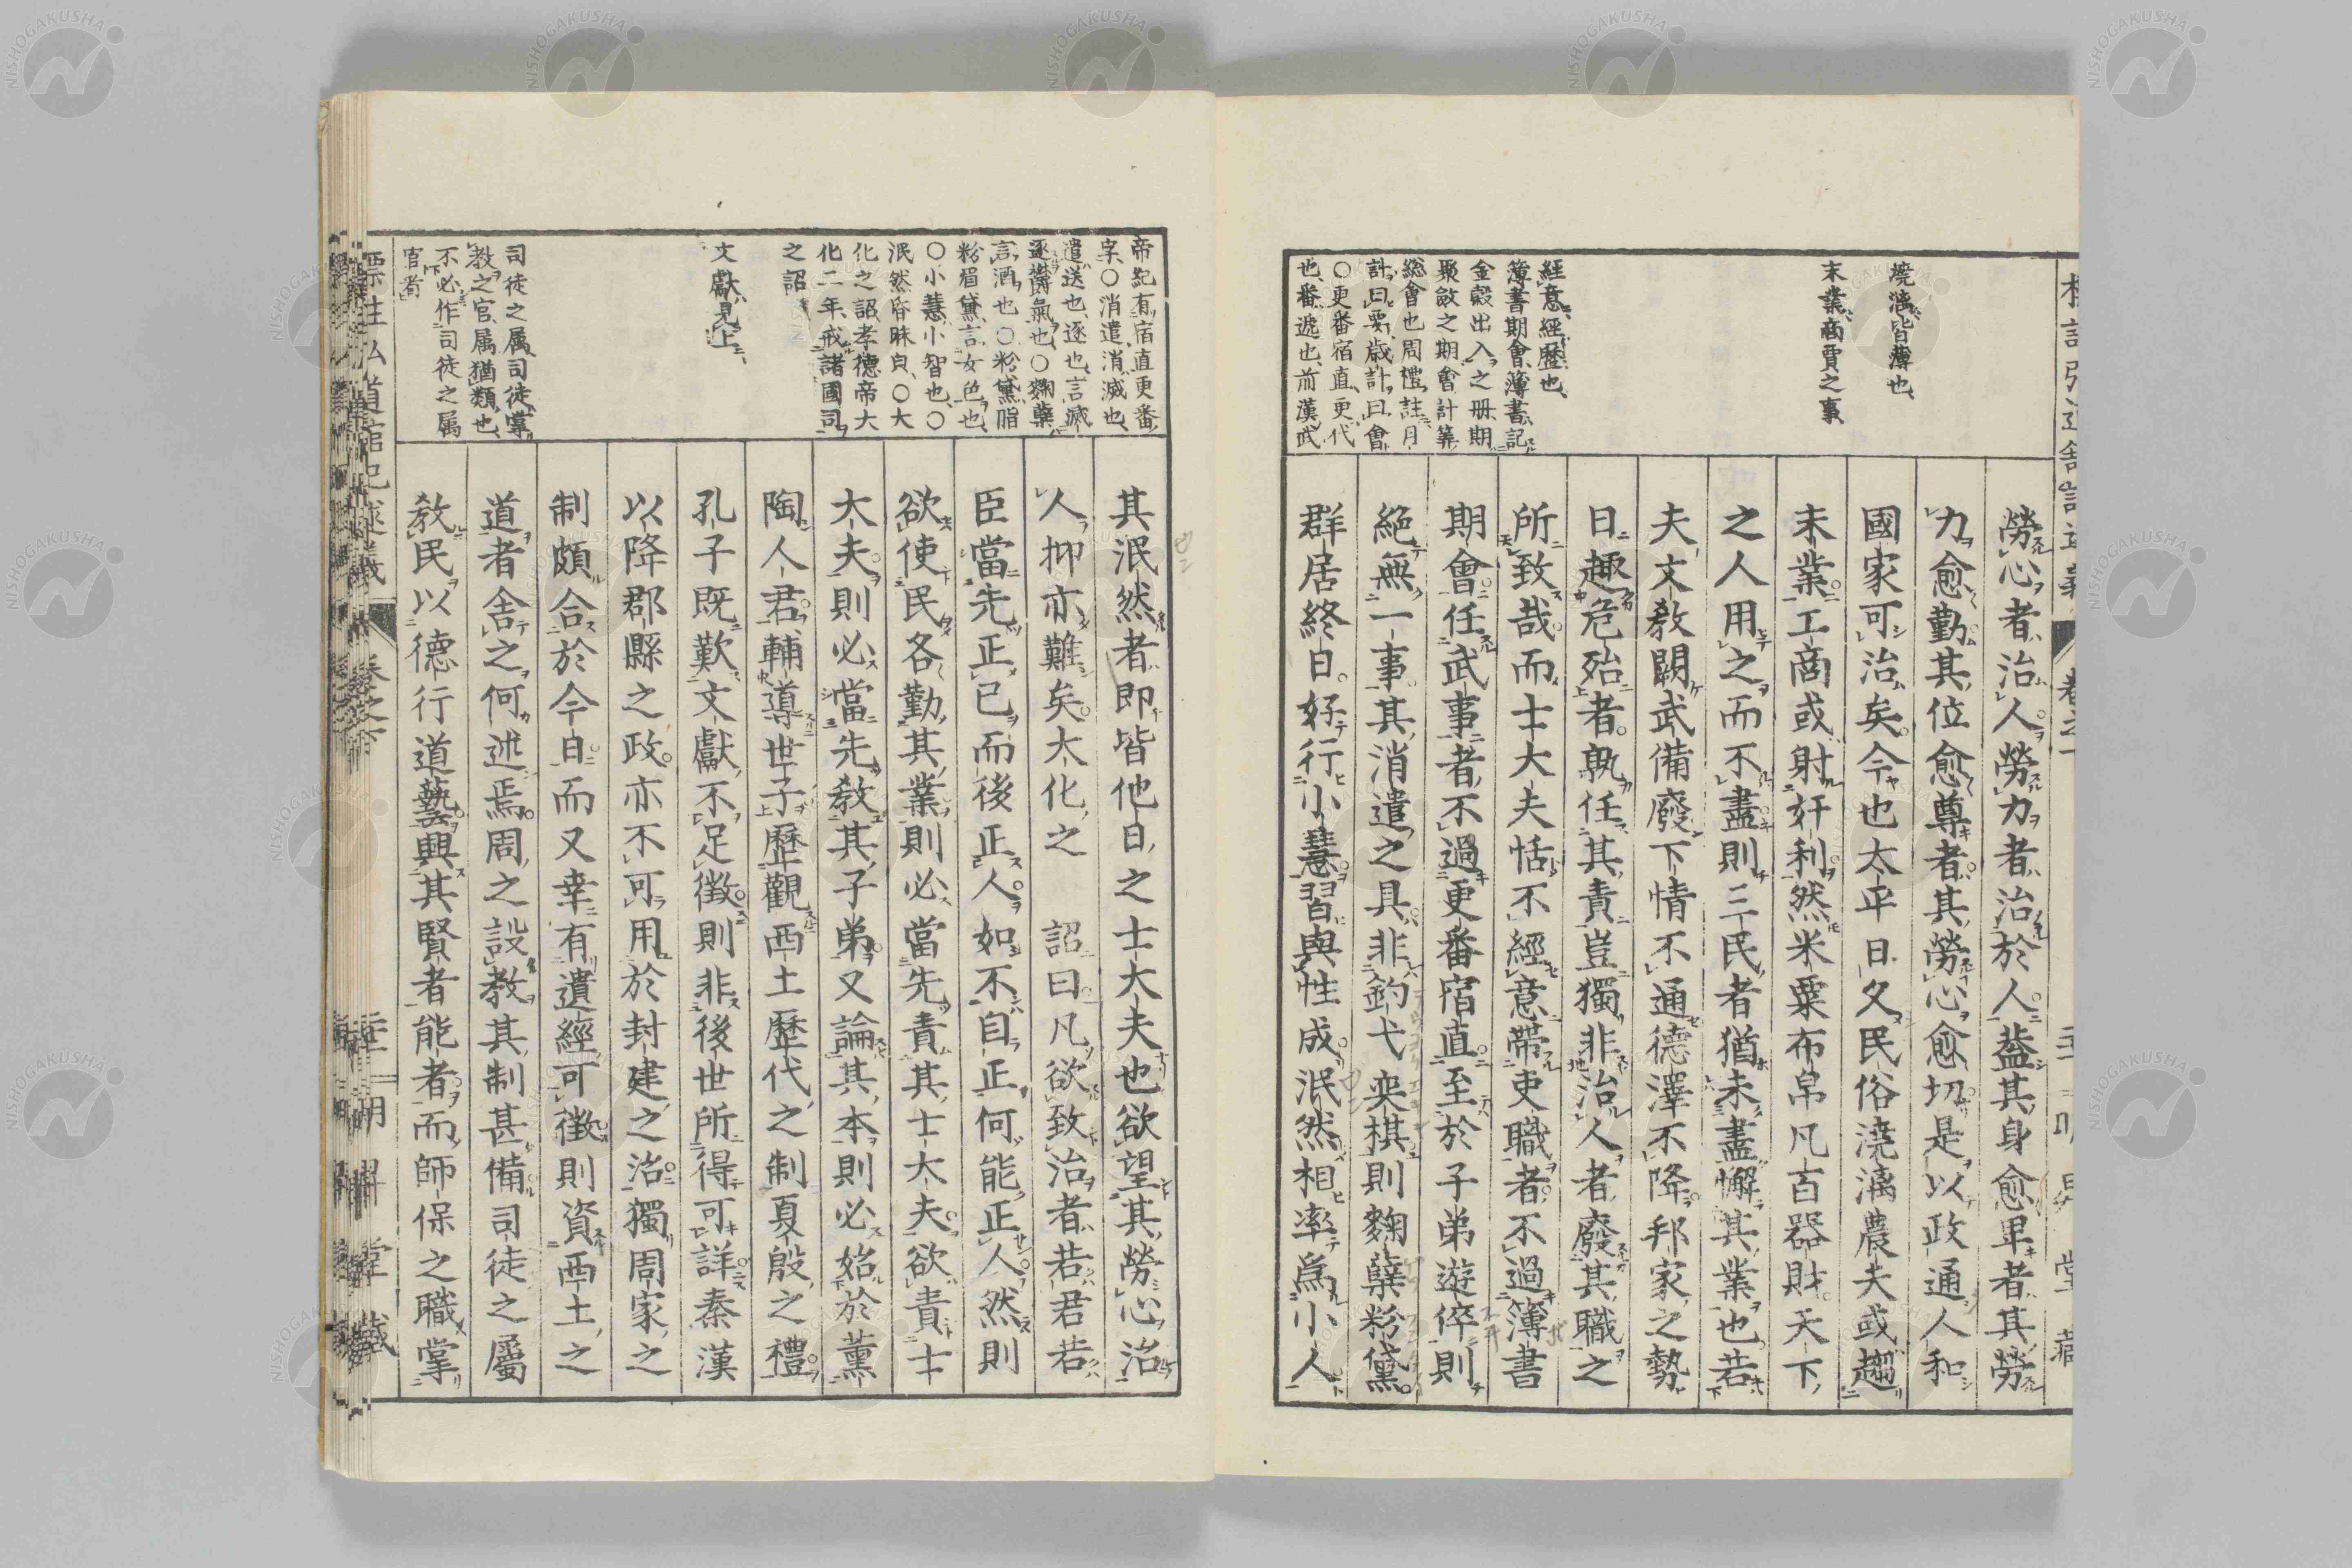 勞心者治人勞力者治於人蓋其身愈卑者其勞
力愈勤其位愈尊者其勞心愈切是以政通人和
國家可治矣今也太平日久民俗澆漓農夫或趨
末業工商或射奸利然米粟布帛凡百器財天下
之人用之而不盡則三民者猶未盡懈其業也若
夫文教闕武備廢下情不通德澤不降邦家之勢
日趣危殆者孰任其責豈獨非治人者廢其職之
所致哉而士大夫恬不經意帶吏職者不過簿書
期會任武事者不過更番宿直至於子弟遊倅則
絕無一事其消遣之具非釣弋奕棋則麴蘖粉黛
群居終日好行小慧習與性成泯然相率爲小人
澆漓皆薄也
末業商賈之事
經意經歷也
簿書期會簿書記
金穀出入之冊期
聚斂之期會計筭
総會也周禮註月
計曰要歳計曰會
○更番宿直更代
也番遞也前漢武
帝紀有宿直更番
字○消遣消滅也
遣送也逐也言滅
逐欝氣也○麴蘖
言酒也○粉黛脂
粉眉黛言女色也
○小慧小智也○
泯然昏昧皃○大
化之詔孝德帝大
化二年戒諸國司
之詔
文獻見上
司徒之属司徒掌
教之官属猶類也
不必作司徒之属
官看
其泯然者即皆他日之士大夫也欲望其勞心治
人抑亦難矣大化之 詔曰凡欲致治者若君若
臣當先正已而後正人如不自正何能正人然則
欲使民各勤其業則必當先責其士大夫欲責士
大夫則必當先教其子弟又論其本則必始於薰
陶人君輔導世子歷觀西土歷代之制夏殷之禮
孔子既歎文獻不足徵則非後世所得可詳秦漢
以降郡縣之政亦不可用於封建之治獨周家之
制頗合於今日而又幸有遺經可徵則資西土之
道者舍之何述焉周之設教其制甚備司徒之屬
教民以德行道藝興其賢者能者而師保之職掌